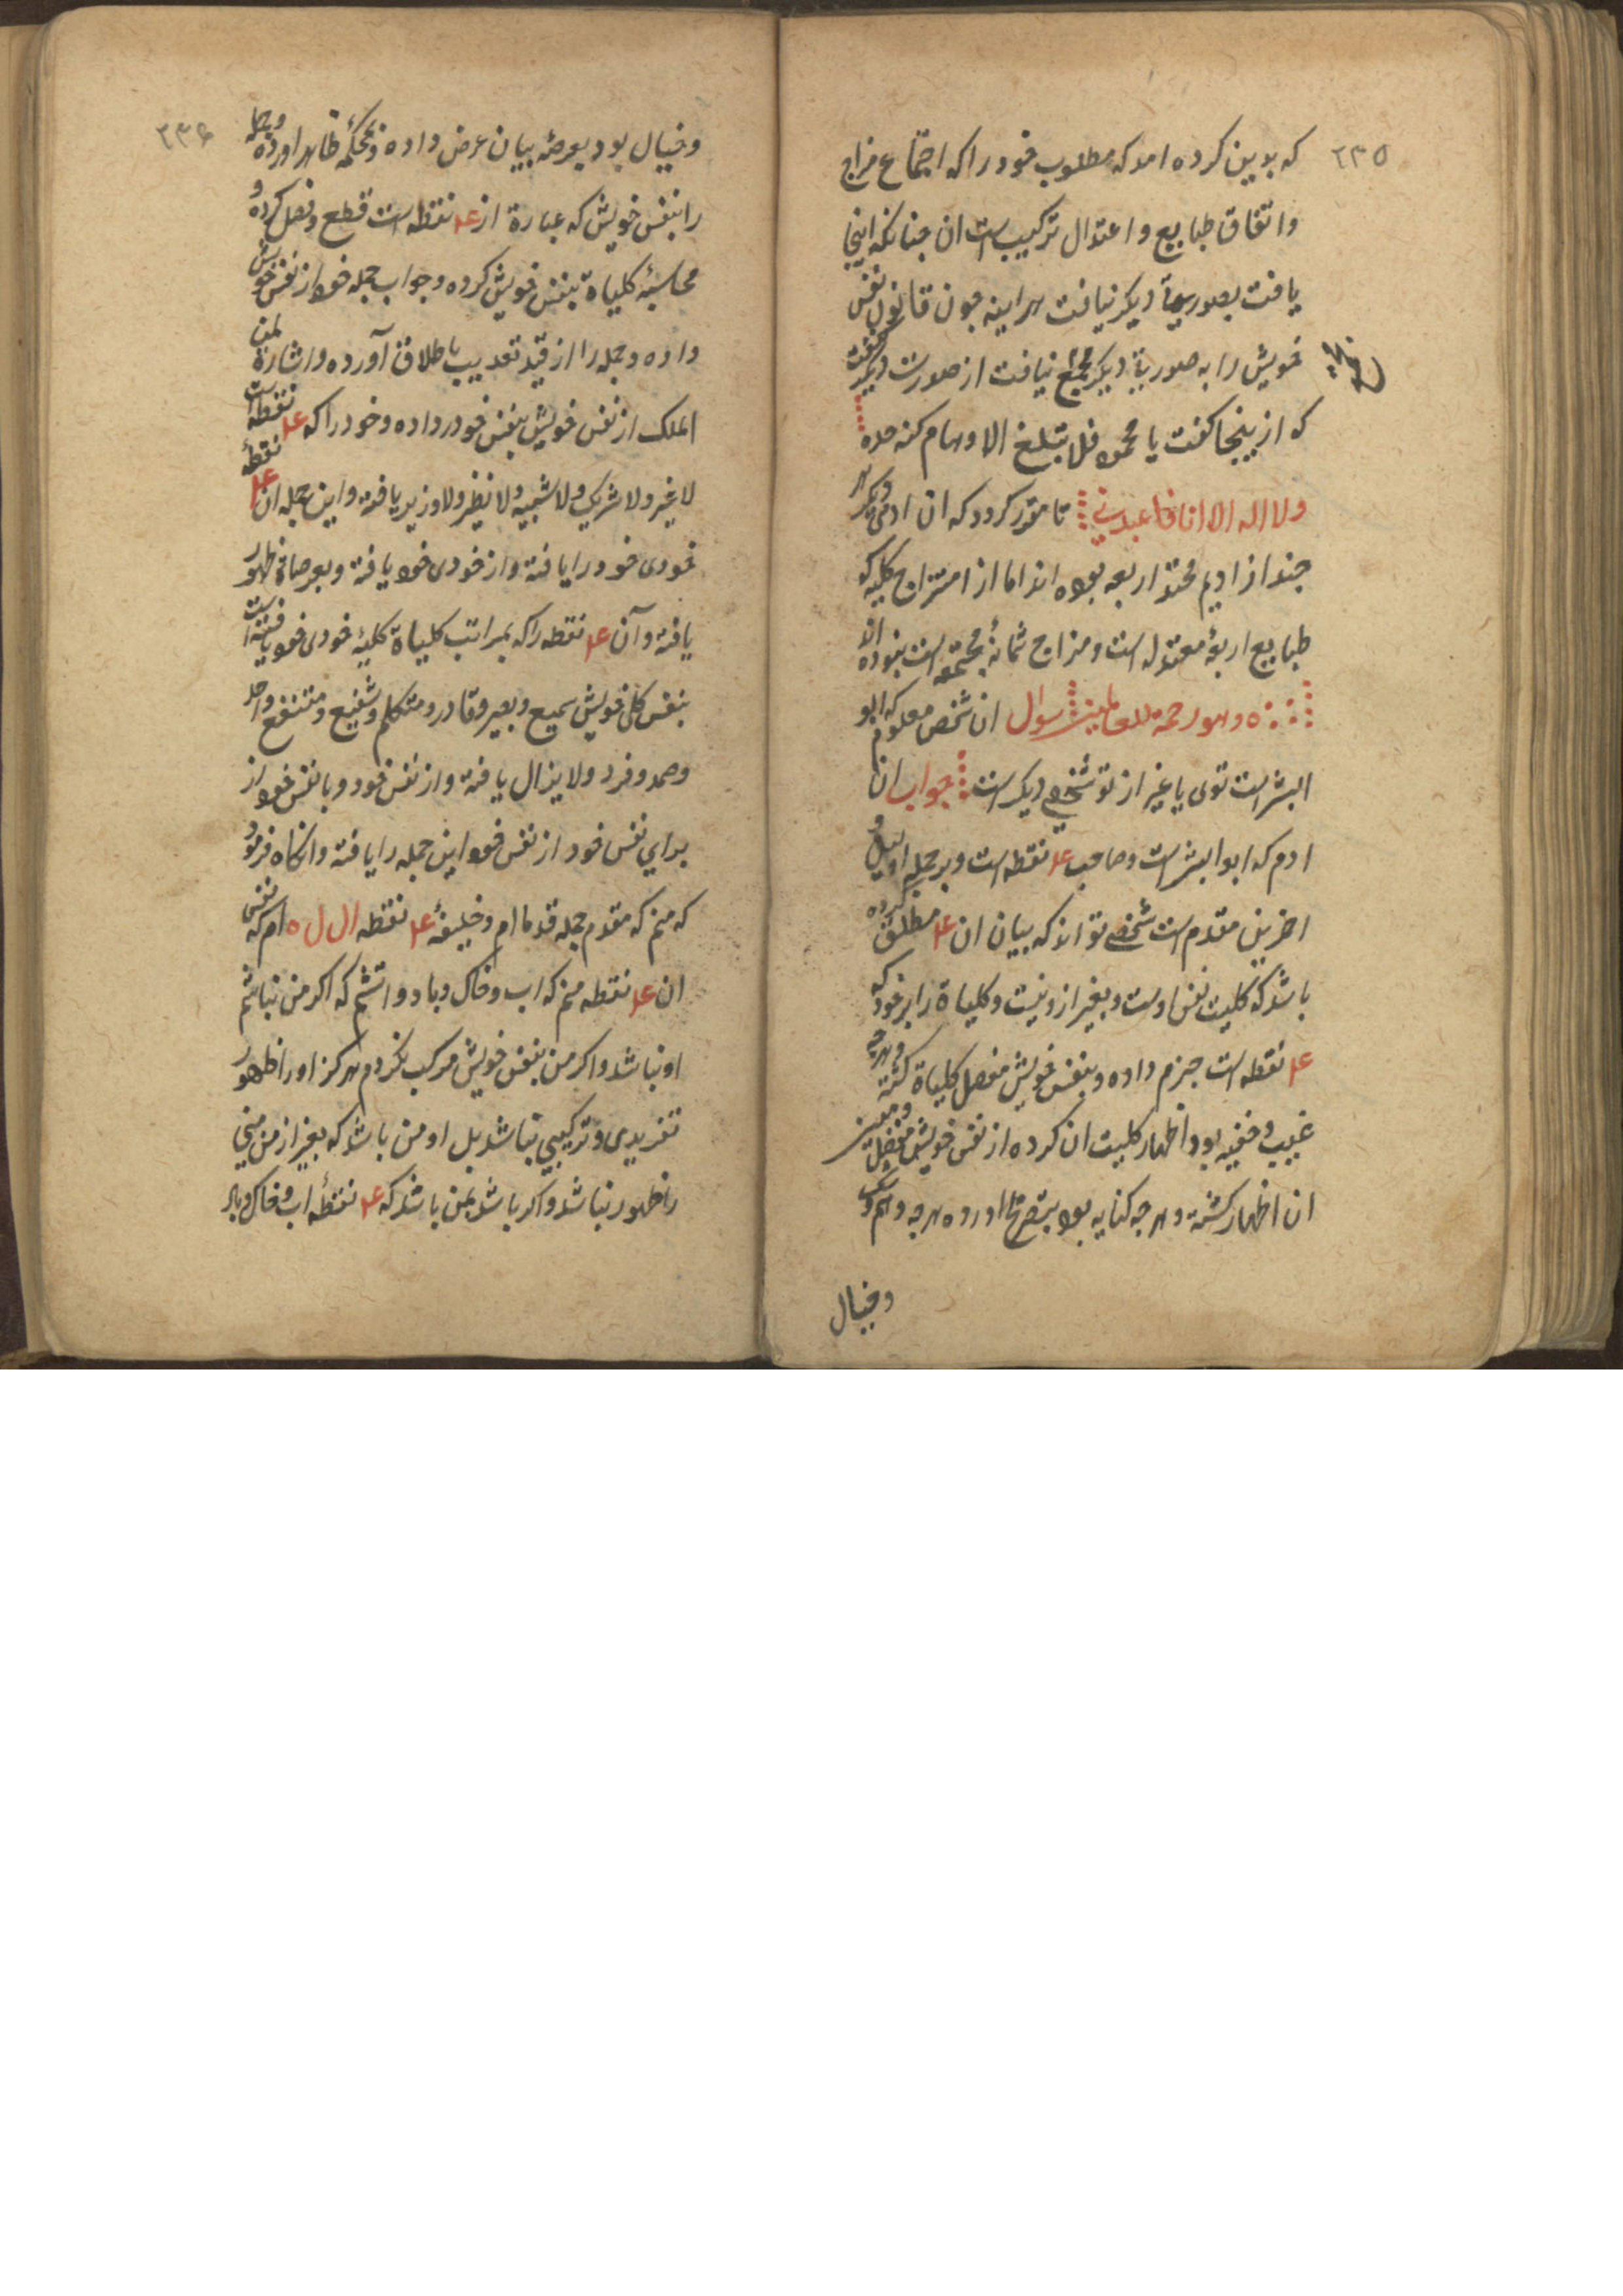 ٢٣٥
که بدین کرده امد که مطلوب خود را که اجتماع مزاج
واتفاق طبایع و اعتدال ترکیب است ان چنانکه اینجا
یافت بصورت دیکر نیافت هراینه چون قانون نفس
خویش را به صورت دیکر مجتمع نیافت از صورت دیکر کفت
که از ینجا کفت یا محمود فل تبلغ الاوهام کنه حده
ولا اله الا انا فاعبدنی تا مقرر کردد که ان ادمی دیکر هر
چند از ادیم محتد اربعه بوده اند اما از امتزاج کلیه که
طبایع اربعهٔ معتدله است ومزاج ثمانهٔ مجتمعه است نبوده اند
ه وهو رحمة للعالمین سوال ان شخص معلوم که ابو
البشر است توی یا غیر از تو شخصی دیکر است جواب ان
ادم که ابو البشر است وصاحب ۴ نقطه است وبر جمله اولیل و
اخرین مقدم است شخصی تواند که بیان ان ۴ مطلق کرده
باشد که کلیت نفس اوست و بغیر ازو نیست وکلیاة را بر خود که
۴ نقطه است جزم داده و بنفس خویش مفصل کلیاة کشته وهرچه
غیب و خفیه بود اظهار کلیت ان کرده از نفس خویش مفصل ومبین
ان اظهار کشته و هرچه کنایه بود بتصریح اورده هرچه وهم وشک
وخیال
٢٣۶
وخیال بود بعرصهٔ بیان عرض داده ومحکمه ظاهر اورده وجمله
را بنفس خویش که عبارة از ۴ نقطه است قطع وفصل کرده و
محاسبهٔ کلیاة بنفس خویش کرده وجواب جمله خود از نفس خویش
داده وجمله را از قید تعذیب باطلاق آورده واشارة لمن
الملک از نفس خویش بنفس خود در داده وخود را که ۴ نقطه است
لا غیر ولا شریک ولا شبیه ولا نظیر ولا وزیر یافته واین جمله ان ۴ نقطه
خودی خود را یافته واز خودی خود یافته وبعرصاة ظهور
یافته وآن ۴ نقطه را که بمراتب کلیاة کلیهٔ خودی خود یافته است
بنفس کلی خویش سمیع وبصیر وقادر ومتکلم وشفیع ومتنفع واحد
وصمد وفرد ولا یزال یافته واز نفس خود وبا نفس خود از
برای نفس خود از نفس خود این جمله را یافته وانکاه فرمود
که منم که مقدم جمله قدما ام وخلیفهٔ ۴ نقطه ال ل ه ام که نفس
ان ۴ نقطه منم که اب وخاک وباد واتشم که اکر من نباشم
او نباشد واکر من بنفس خویش مرکب نکردم هرکز اورا ظهور
تفریدی وترکیبی نباشد بل او من باشد که بغیر از من منی
را ظهور نباشد واکر باشد بمن باشد که ۴ نقطهٔ اب وخاک وباد